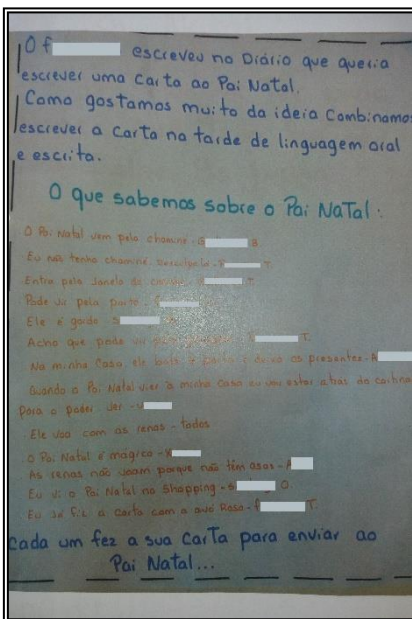 O f escreveu no Diário que queria
escrever uma carta ao Pai Natal.
Como gostamos muito da ideia Combinamos
escrever a carta na tarde de linguagem oral
e escrita.
O que sabemos sobre o Pai NaTal:
O Pai Natal vem pela chaminé - G B.
Eu não tenho chaminé. T.
Entra pela Janela da T.
Pode vir pela porta -
Ele é gordo - S
Acho que pode vir T.
Na minha Casa ele bate à porta e deixa os presentes - A
Quando o Pai Natal vier à minha Casa eu vou estar atrás da cortina
para o poder ver -
Ele voa com as renas - todos
O Pai Natal é mágico -
As renas não voam porque não têm asas - A
Eu vi o Pai Natal no Shopping - S O.
Eu já fiz a Carta com a avó Rosa - f T.
Cada um fez a sua CarTa para enviar ao
Pai Natal...